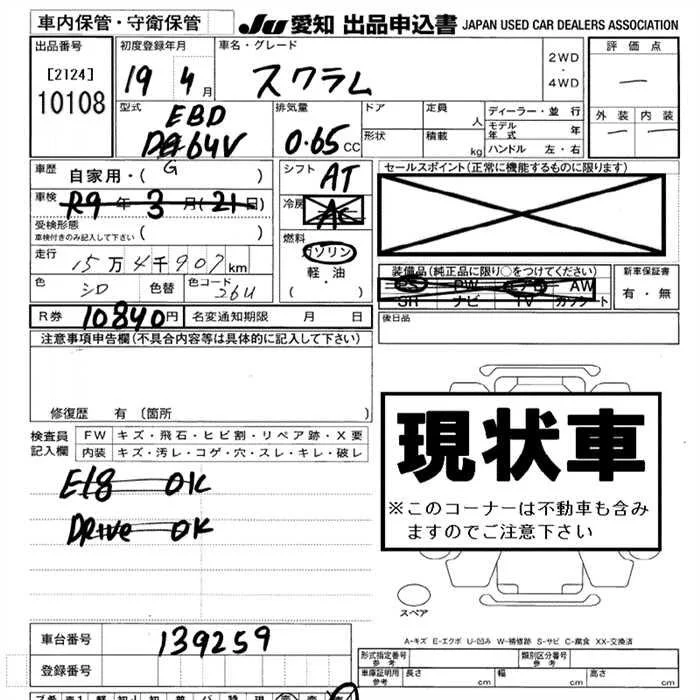 車内保管・守衛保管
JU 愛知 出品申込書 JAPAN USED CAR DEALERS ASSOCIATION
出品番号
[2124]
10108
初度登録年月
19 4月
車名・グレード
スクラム
2WD
・
4WD
評価点
—
外装 内装
— —
型式
EBD
DG64V
排気量
0.65 CC
ドア
形状
定員 人
積載 kg
ディーラー・並行
モデル年式 年
ハンドル 左・右
車歴 自家用・( G )
車検 R9年3月(21日)
受検形態
車検付きのみ記入して下さい ( )
走行 15万4千907km
色 シロ 色替 色コード 26U
シフト AT
冷房 AC
燃料
ガソリン
軽・油
( ・ )
セールスポイント(正常に機能するものに限ります)
装備品(純正品に限り○をつけてください)
PS PW エアB AW
SR ナビ TV カワシート
新車保証書
有・無
R券 10840円 名変通知期限 月 日
後日品
注意事項申告欄(不具合内容等は具体的に記入して下さい)
修復歴 有 (箇所 )
検査員記入欄
FW キズ・飛石・ヒビ割・リペア跡・X要
内装 キズ・汚レ・コゲ・穴・スレ・キレ・破レ
OK
Drive OK
現状車
※このコーナーは不動車も含みますのでご注意下さい
スペア
A-キズ E-エクボ U-凹み W-補修跡 S-サビ C-腐食 XX-交換済
車台番号 139259
登録番号
形式指定番号 参考
類別区分番号 参考
車庫証明用 参考 長さ cm 幅 cm 高さ cm